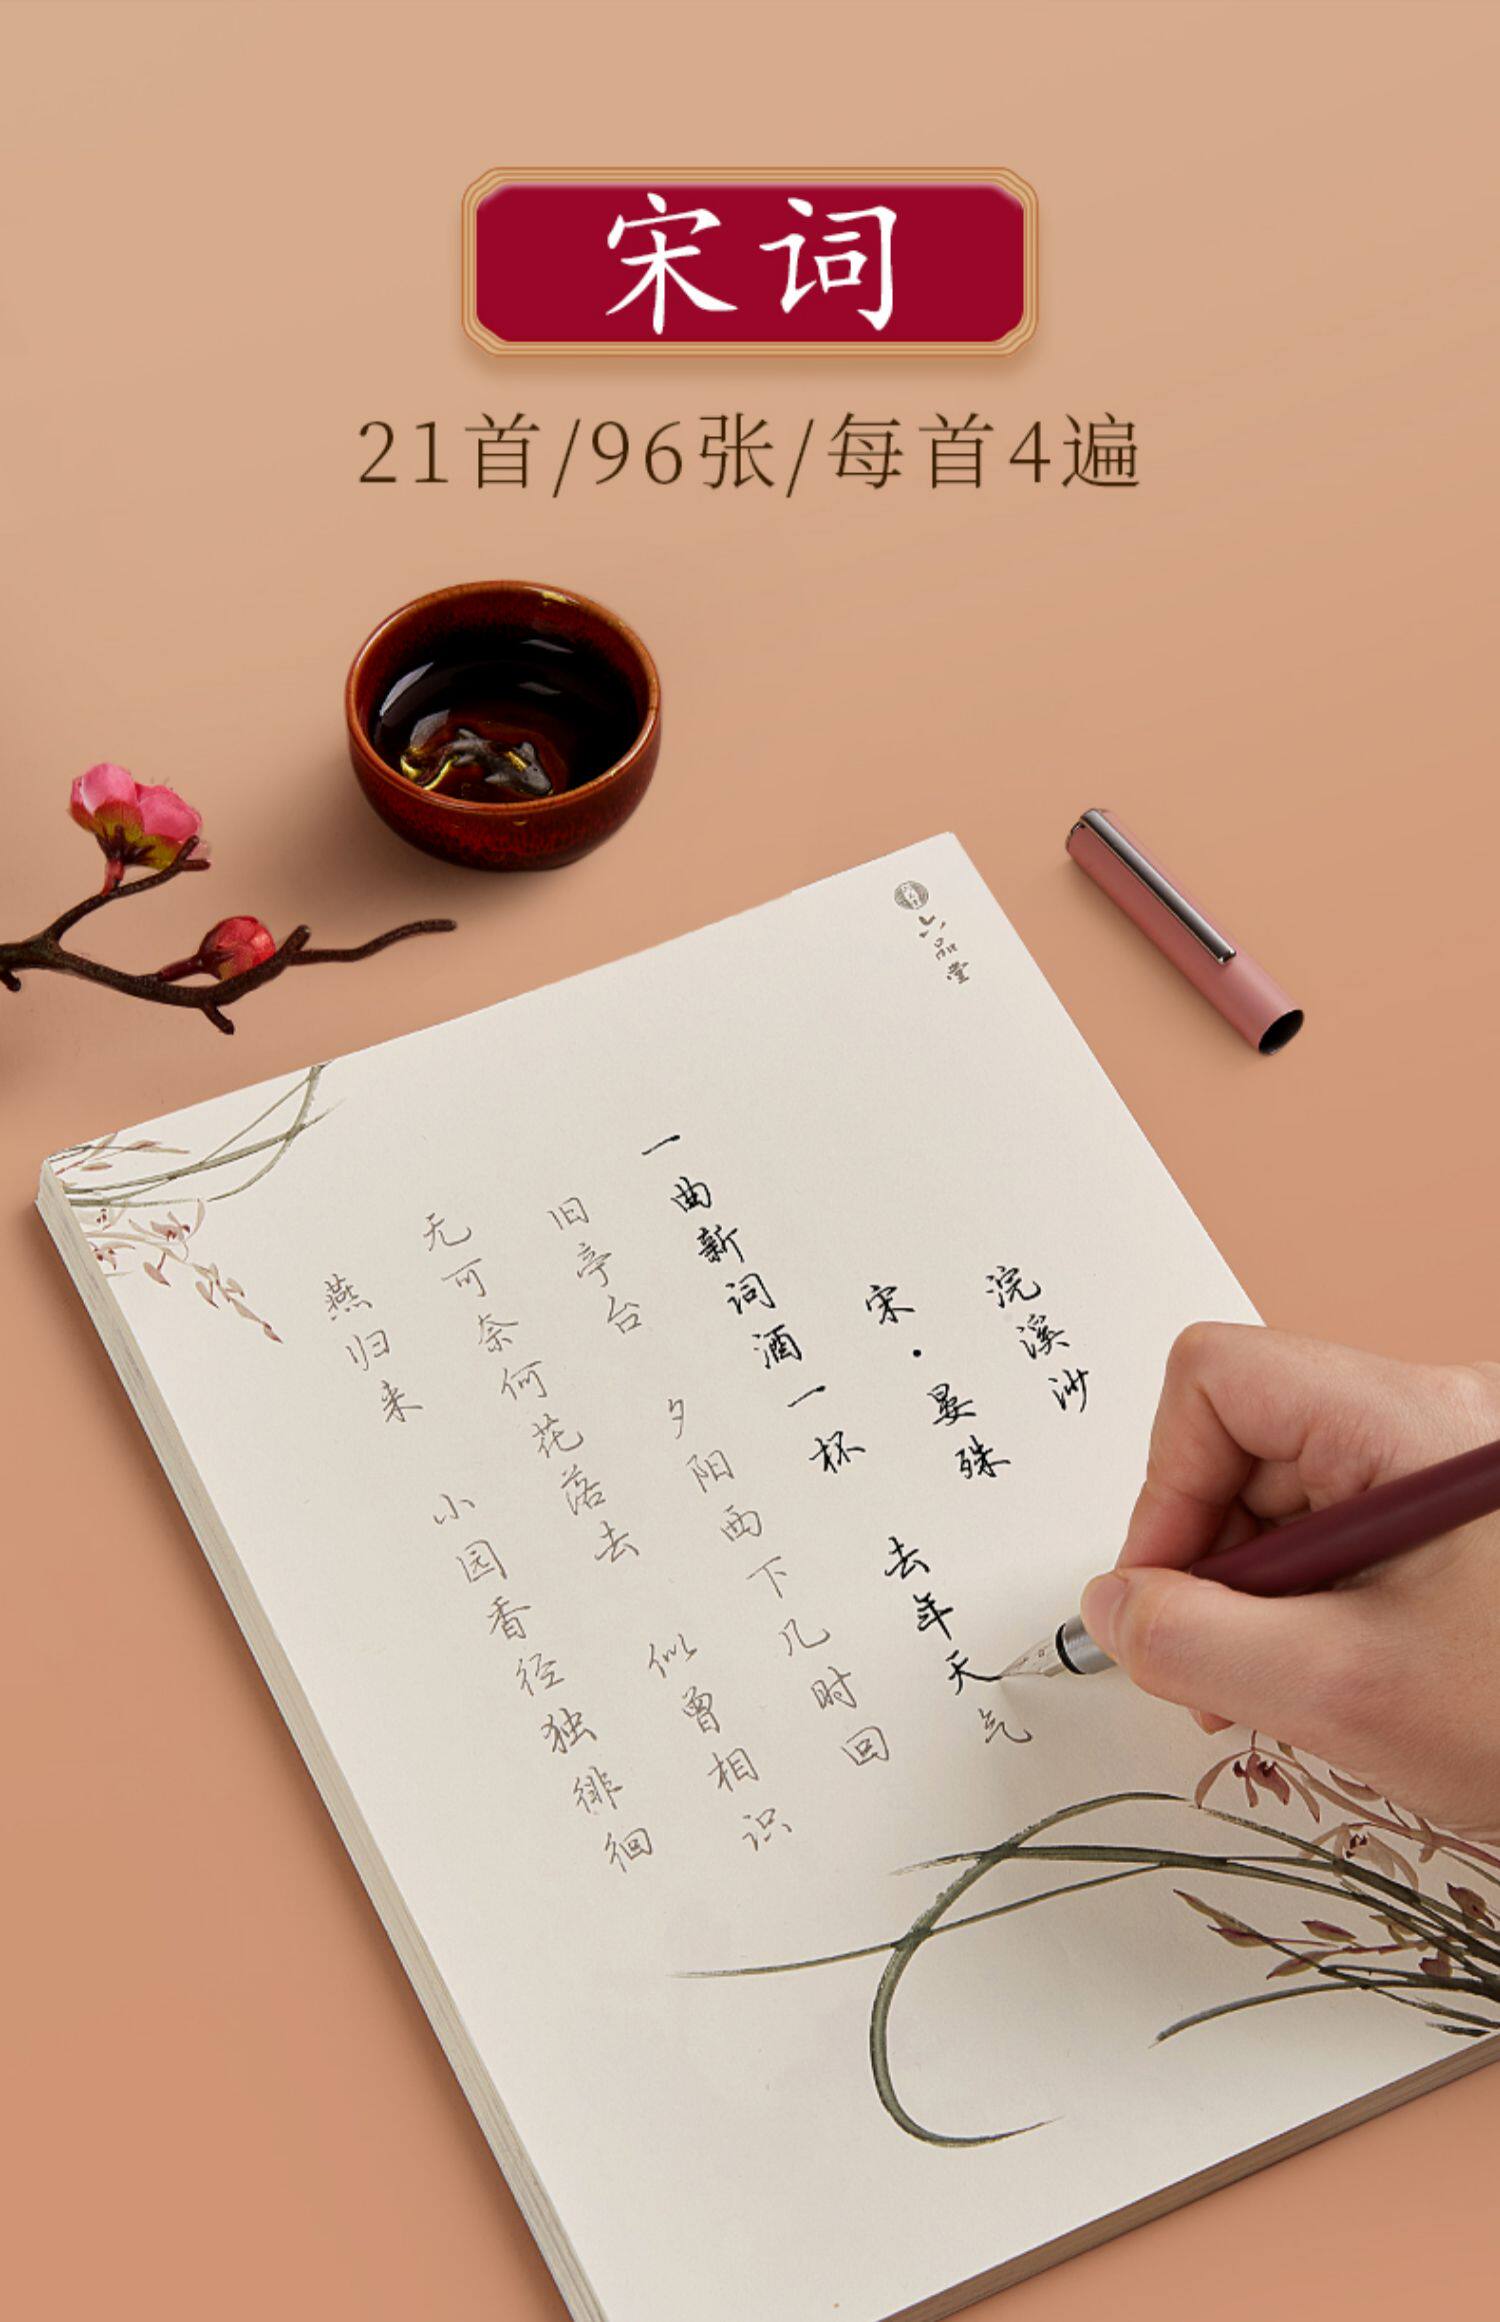 宋词
21首/96张/每首4遍
六品堂
浣溪沙
宋·晏殊
一曲新词酒一杯 去年天气
旧亭台 夕阳西下几时回
无可奈何花落去 似曾相识
燕归来 小园香径独徘徊